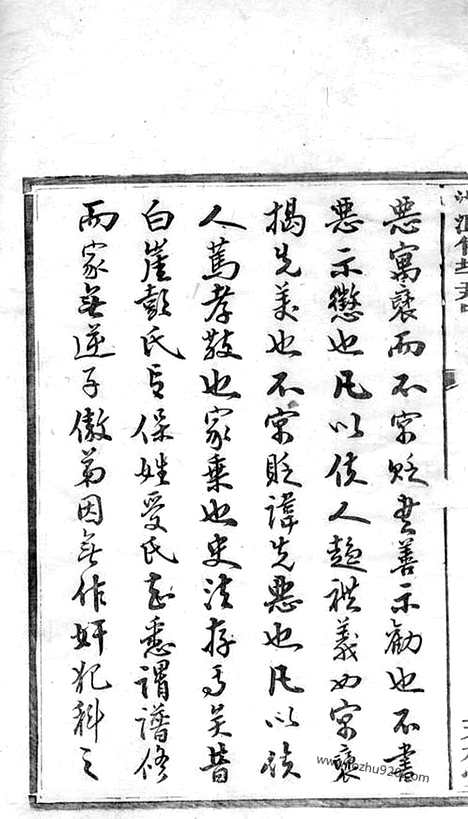 惡寓褒而不寓貶書善示勸也不書
惡示懲也凡以使人趨禮義而寓褒
揭先美也不寓貶諱先惡也凡以談
人篤孝敬也家乘也史法存焉矣昔
白崖彭氏與保姓受氏者悉謂譜修
而家無逆子傲弟因無作奸犯科之
www.zuzhu920.com